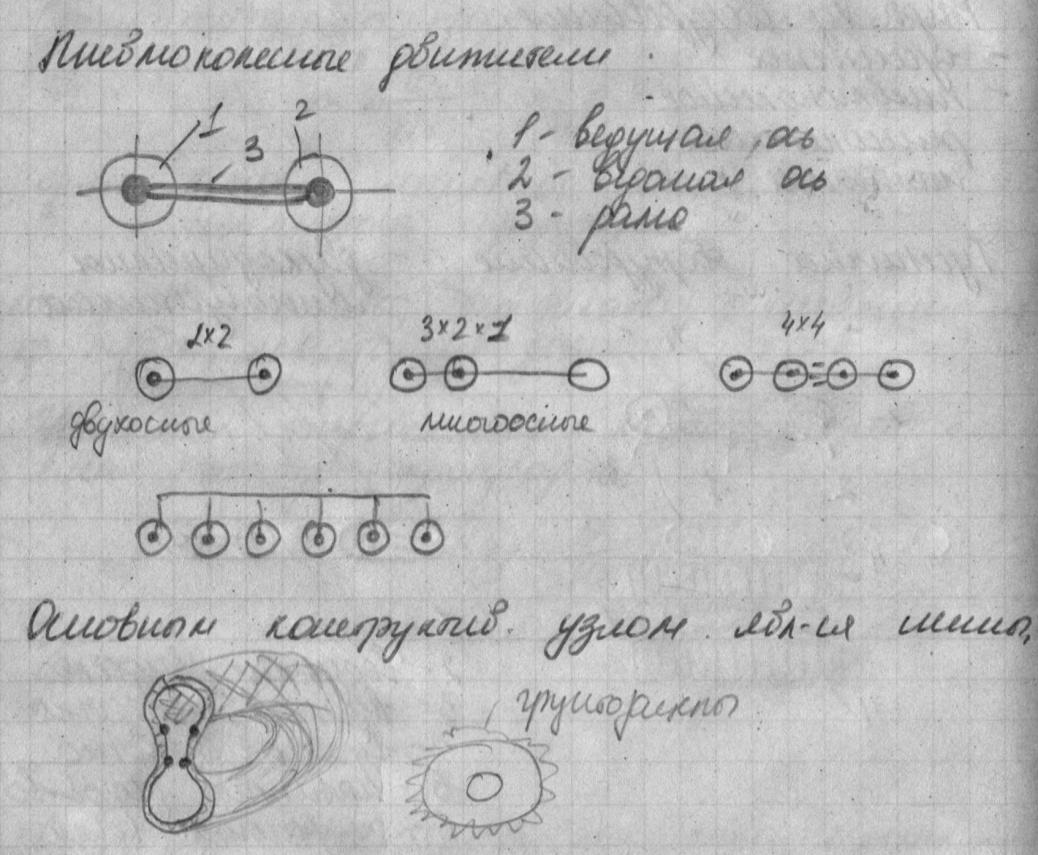 Пневмоколесные движители.
1 2
3
1 - ведущая ось
2 - ведомая ось
3 - рама
2×2 3×2×1 4×4
двухосные многоосные
Основным конструктив. узлом явл-ся шины,
грунтозацепы